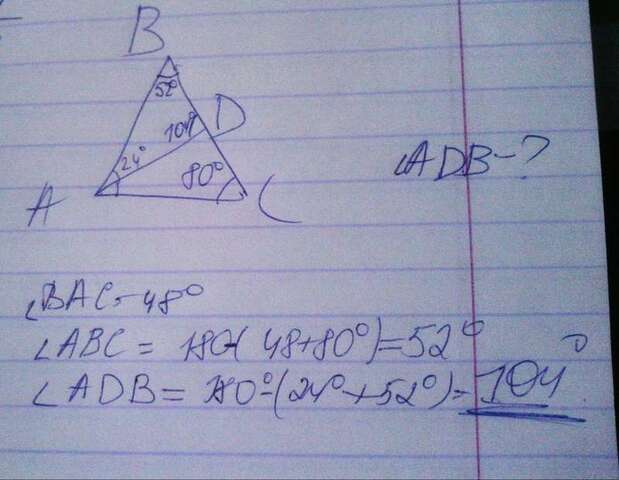 B
52°
104°
D
24°
80°
A
C
∠ADB-?
∠BAC=48°
∠ABC = 180-(48+80°)=52°
∠ADB= 180°-(24°+52°)=104°